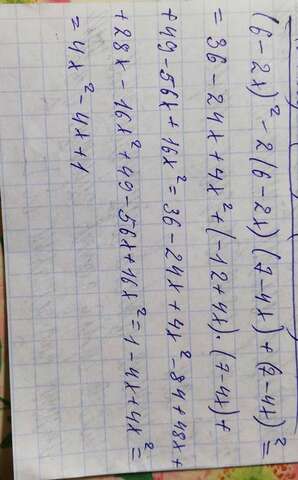 (6-2x)² - 2(6-2x)(7-4x) + (7-4x)² =
= 36 - 24x + 4x² + (-12+4x)·(7-4x) +
+ 49 - 56x + 16x² = 36 - 24x + 4x² - 84 + 48x +
+ 28x - 16x² + 49 - 56x + 16x² = 1 - 4x + 4x² =
= 4x² - 4x + 1